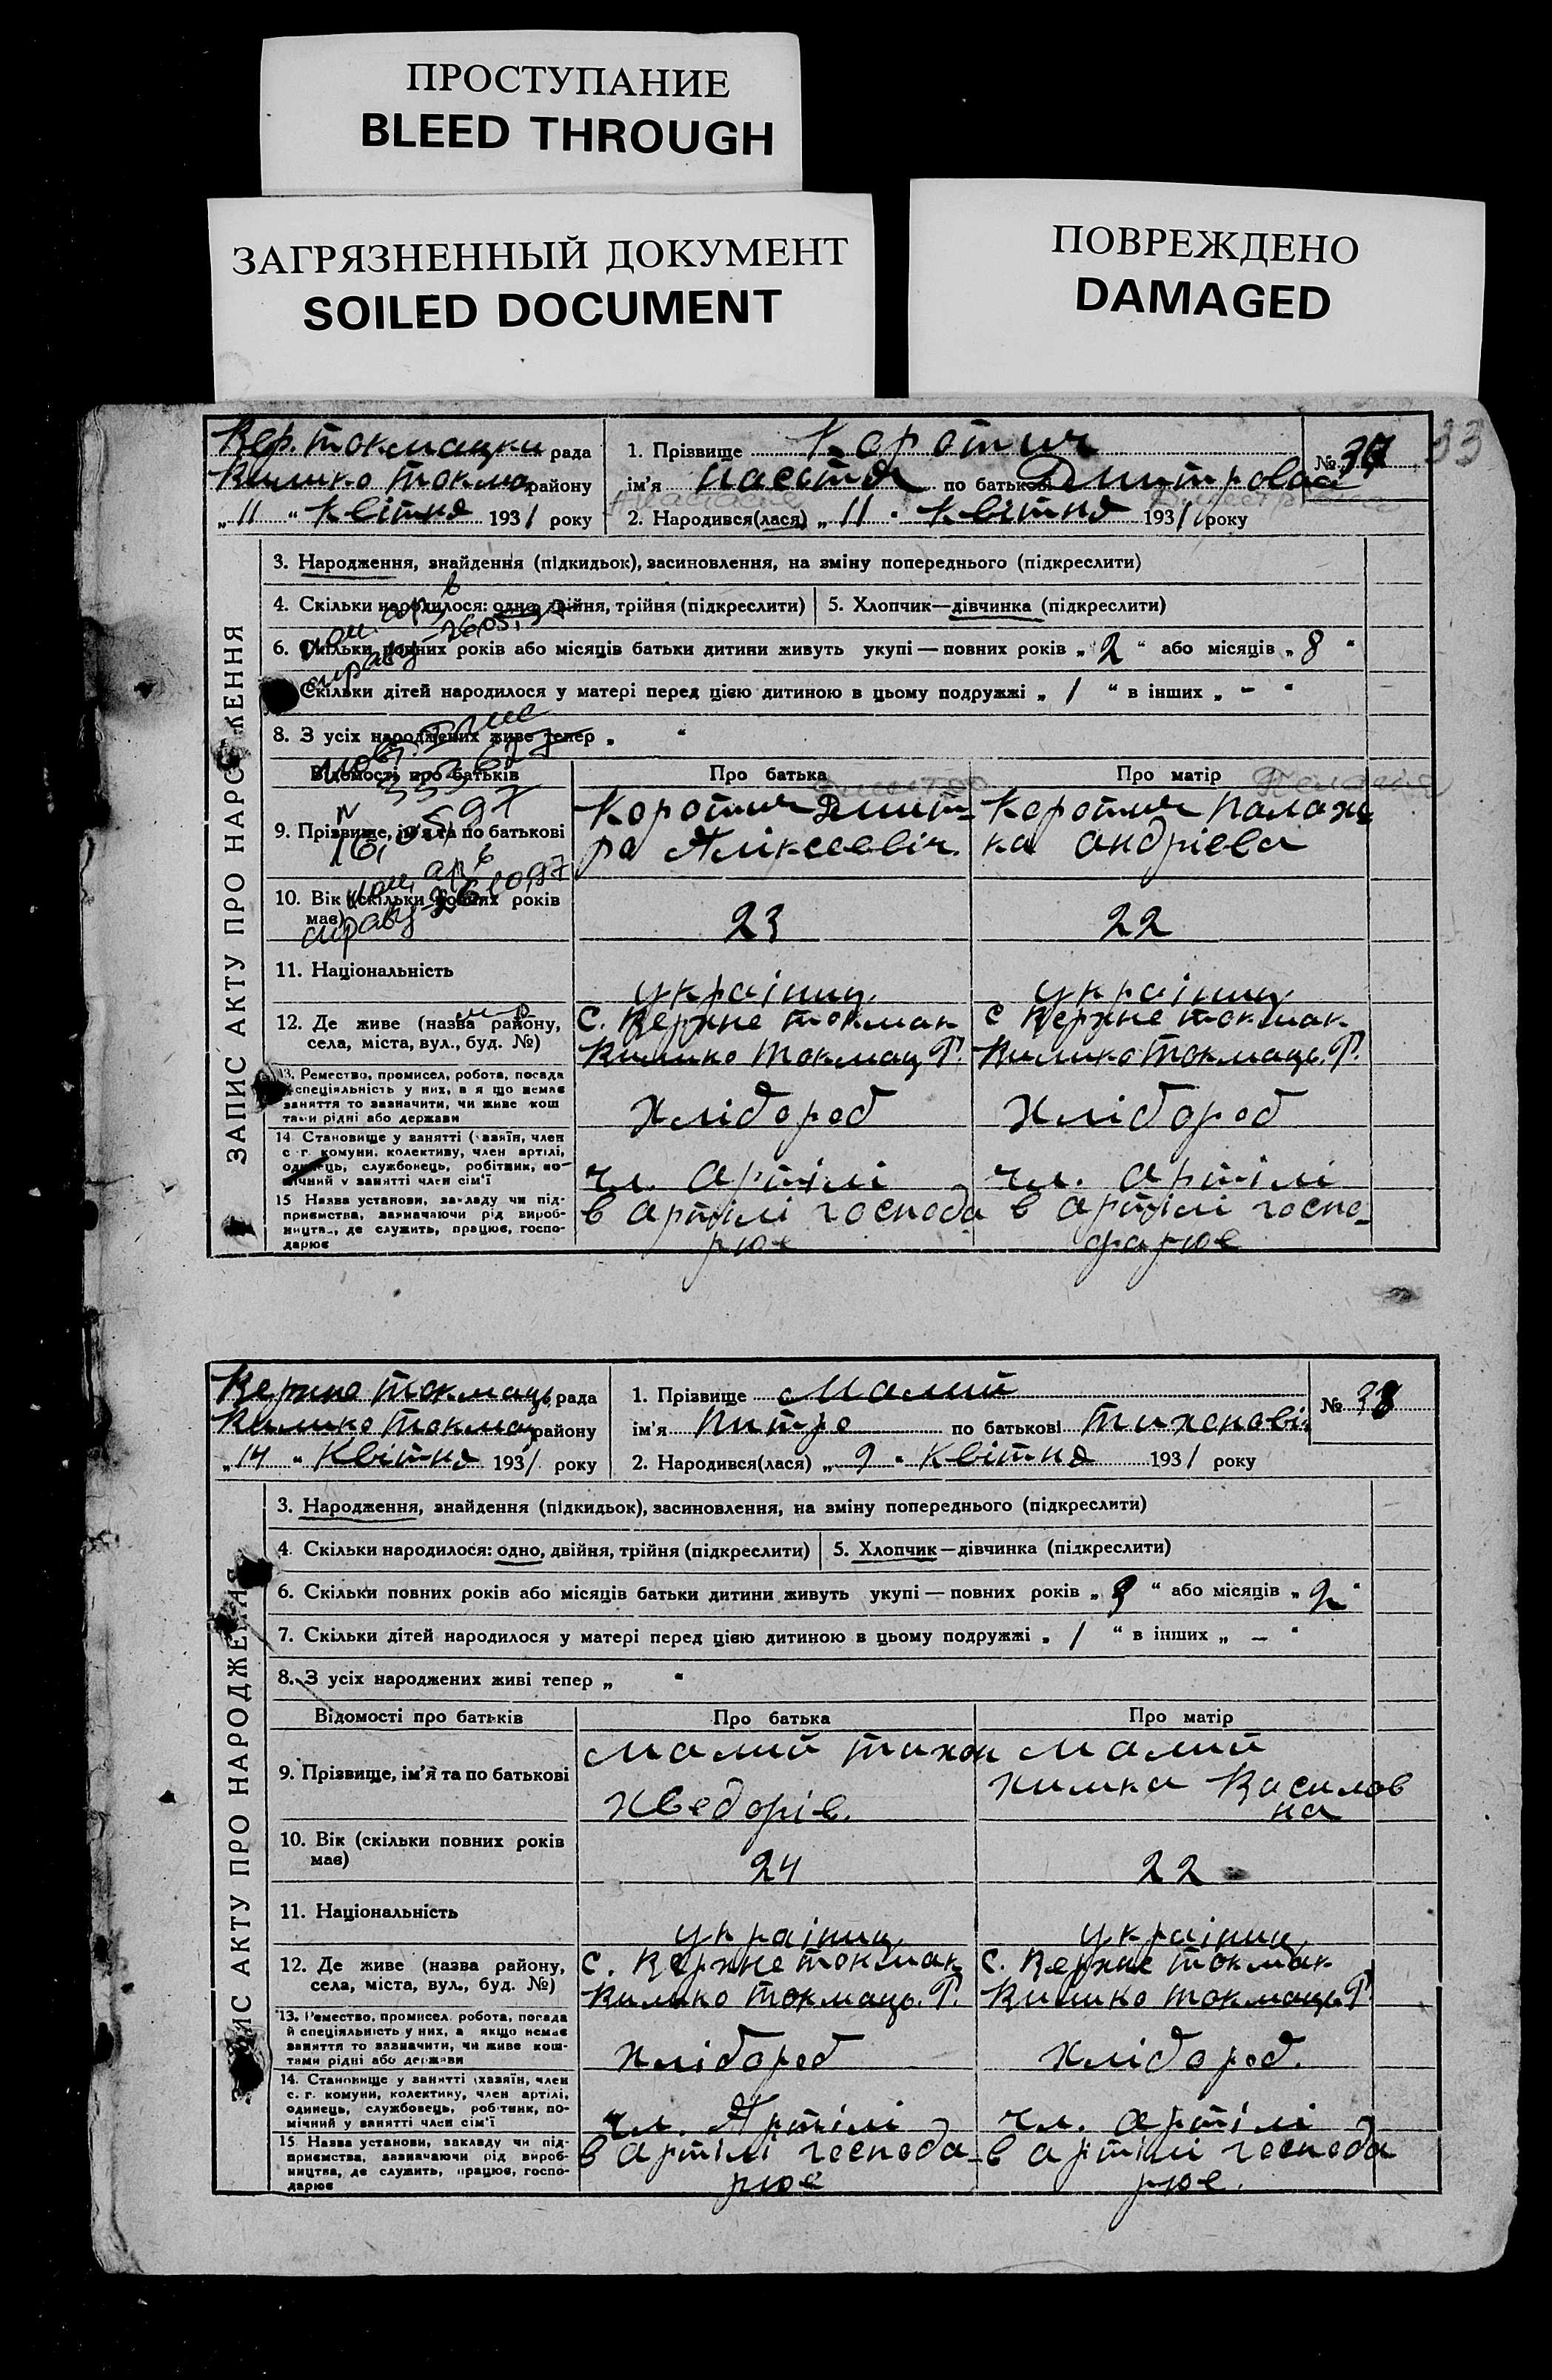 ПРОСТУПАНИЕ
BLEED THROUGH
ЗАГРЯЗНЕННЫЙ ДОКУМЕНТ
SOILED DOCUMENT
ПОВРЕЖДЕНО
DAMAGED
33
Вер. Токмацки рада
Вилико Токма району
„ 11 “ Квітня 1931 року
1. Прізвище Коротич
№ 37
ім'я Настя по батькові Дмитровна
2. Народився(лася) „ 11 “ Квітня 1931 року
ЗАПИС АКТУ ПРО НАРОДЖЕННЯ
3. Народження, знайдення (підкидьок), засиновлення, на зміну попереднього (підкреслити)
4. Скільки народилося: одно, двійня, трійня (підкреслити)
5. Хлопчик—дівчинка (підкреслити)
6. Скільки повних років або місяців батьки дитини живуть укупі — повних років „ 2 “ або місяців „ 8 “
Скільки дітей народилося у матері перед цією дитиною в цьому подружжі „ 1 “ в інших „ - “
8. З усіх народжених живе тепер „ “
Відомості про батьків
Про батька
Про матір
9. Прізвище, ім'я та по батькові
Коротич Дмит-
ра Аліксеевіч
Коротич Палаж
ка Андріева
10. Вік (скільки повних років має)
23
22
11. Національність
украінц
украінц
12. Де живе (назва району,
села, міста, вул., буд. №)
с. Верхне Токмак
Вилико Токмац. Р.
с Верхне Токмак
Вилико Токмаць. Р.
13. Ремество, промисел, робота, посада
й спеціяльність у них, а я що немає
заняття то зазначити, чи живе кош
тами рідні або держави
Хлібороб
Хлібороб
14. Становище у занятті (хазяїн, член
с.-г. комуни, колективу, член артілі,
одинець, службовець, робітник, по-
мічний у занятті член сім'ї
чл. артілі
чл. артілі
15 Назва установи, закладу чи під-
приємства, зазначаючи рід вироб-
ництва, де служить, працює, госпо-
дарює
в артілі господа
рює
в артілі госпо-
дарює
Верхне Токмаць рада
Вилико Токмац району
„ 14 “ Квітня 1931 року
1. Прізвище Малий
№ 38
ім'я Питро по батькові Тихоновіч
2. Народився(лася) „ 9 “ Квітня 1931 року
ЗАПИС АКТУ ПРО НАРОДЖЕННЯ
3. Народження, знайдення (підкидьок), засиновлення, на зміну попереднього (підкреслити)
4. Скільки народилося: одно, двійня, трійня (підкреслити)
5. Хлопчик—дівчинка (підкреслити)
6. Скільки повних років або місяців батьки дитини живуть укупі — повних років „ 3 “ або місяців „ 9 “
7. Скільки дітей народилося у матері перед цією дитиною в цьому подружжі „ 1 “ в інших „ - “
8. З усіх народжених живі тепер „ “
Відомості про батьків
Про батька
Про матір
9. Прізвище, ім'я та по батькові
Малий Тихон
Хведорів.
Малий
Химка Василов
на
10. Вік (скільки повних років
має)
24
22
11. Національність
украінц
украінц
12. Де живе (назва району,
села, міста, вул., буд. №)
с. Верхне Токмак
Вилико Токмаць. Р.
с. Верхне Токмак
Вилико Токмаць Р
13. Ремество, промисел, робота, посада
й спеціяльність у них, а якщо немає
заняття то зазначити, чи живе кош-
тами рідні або держави
Хлібороб
Хлібороб.
14. Становище у занятті (хазяїн, член
с. г. комуни, колективу, член артілі,
одинець, службовець, робітник, по-
мічний у занятті член сім'ї
чл. Артілі
чл. артілі
15 Назва установи, закладу чи під-
приємства, зазначаючи рід вироб-
ництва, де служить, працює, госпо-
дарює
в артілі господа-
рює
в артілі господа
рює.